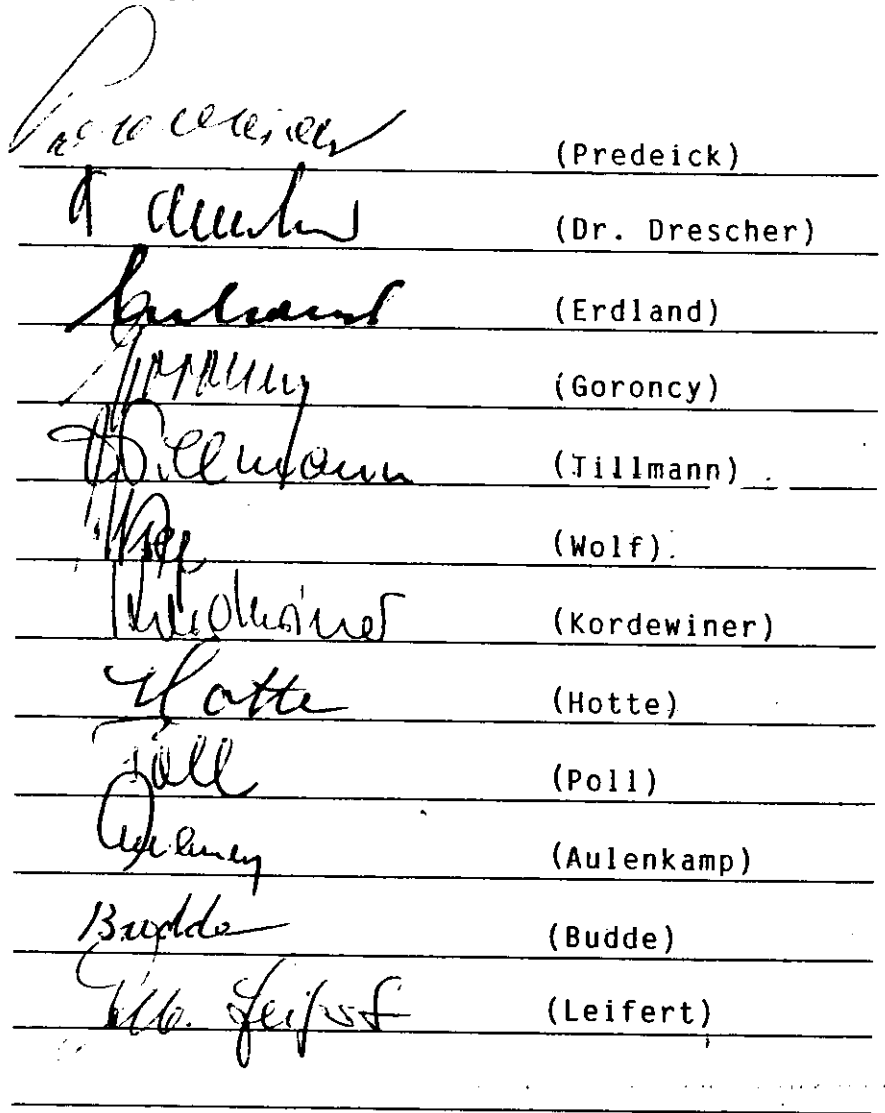 (Predeick)
(Dr. Drescher)
(Erdland)
(Goroncy)
Tillmann (Tillmann)
(Wolf)
(Kordewiner)
Hotte (Hotte)
Poll (Poll)
(Aulenkamp)
Budde (Budde)
Leifert (Leifert)